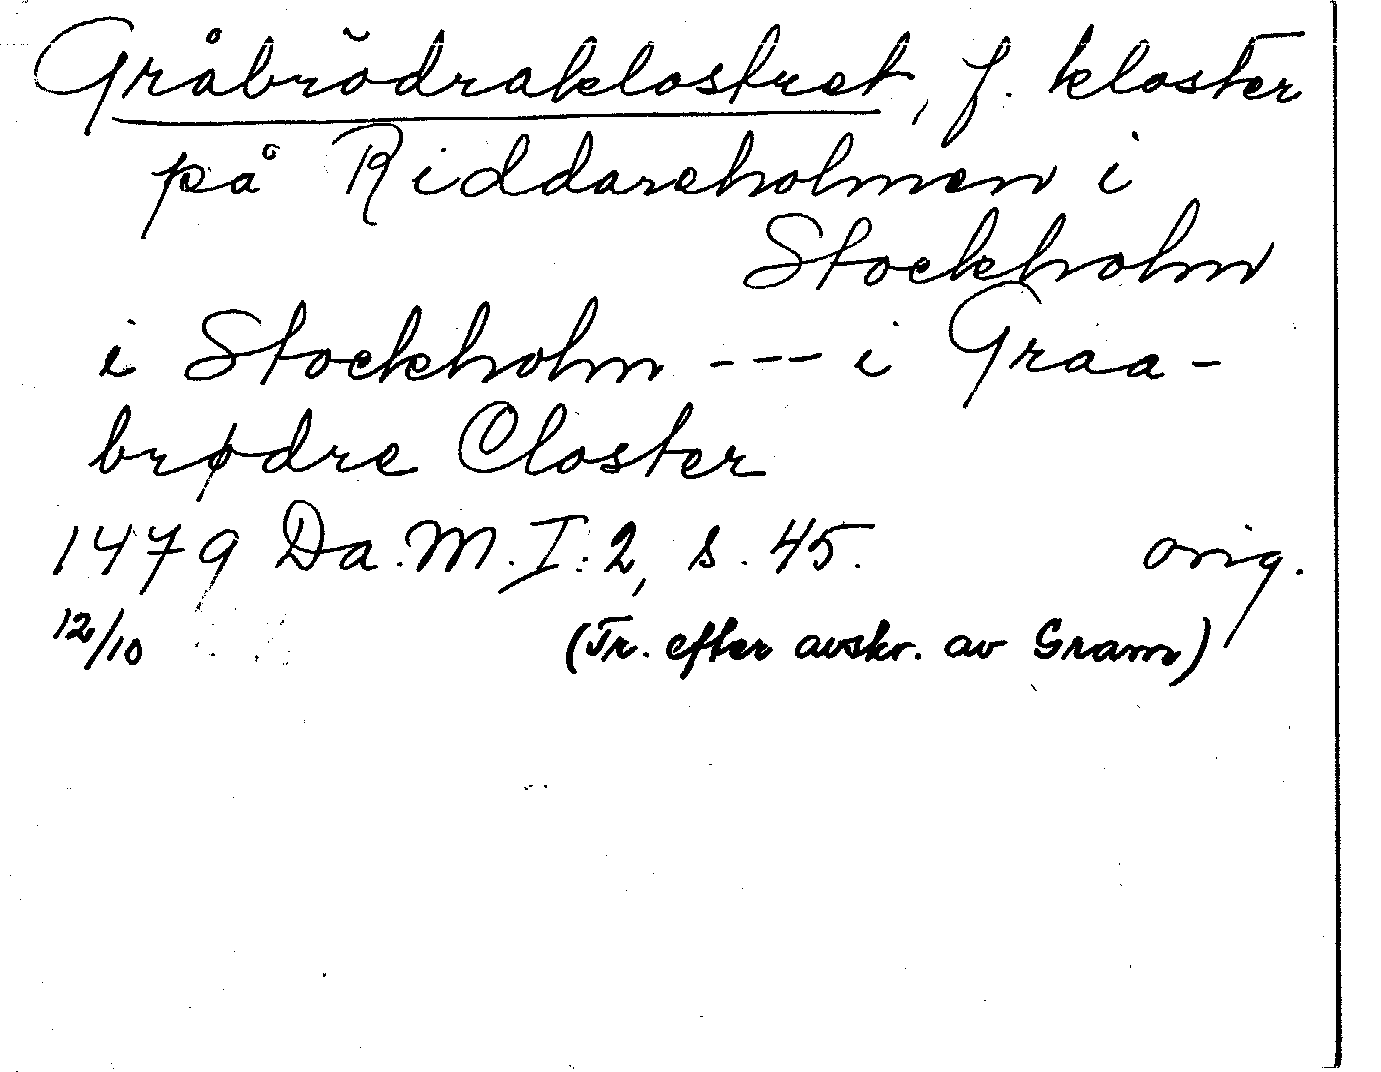 Gråbrödraklostret, f. kloster
på Riddareholmen i
Stockholm
i Stockholm --- i Graa-
brødre Closter
1479 Da.M.I:2, s. 45. orig.
12/10 (Tr. efter avskr. av Gram)